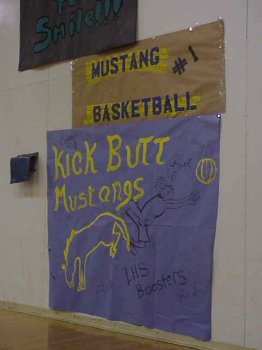 Smile!!!
MUSTANG
#1
BASKETBALL
KICK BUTT
Mustangs
LHS
Boosters